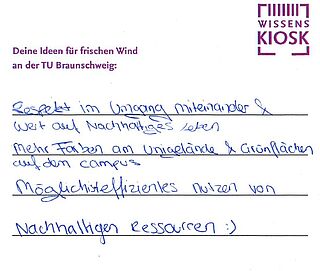 WISSENS
KIOSK
Deine Ideen für frischen Wind
an der TU Braunschweig:
Respekt im Umgang miteinander &
Wert auf Nachhaltiges Leben
Mehr Farben am Unigelände & Grünflächen
auf dem Campus
Möglichsteffizientes nutzen von
Nachhaltigen Ressourcen :)